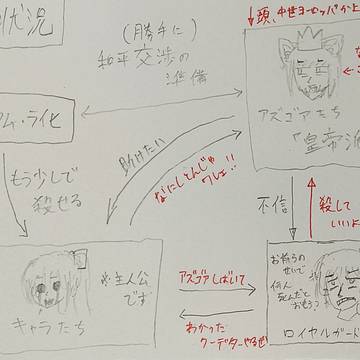 状況
(勝手に)
和平交渉の
準備
頭、中世ヨーロッパかよ
アズゴアたち
「皇帝派
ム・ライヒ
もう少しで
殺せる
助けたい
なにしとんじゃ
ワレェ!!
不信
殺して
いいよ
※主人公
です
キャラたち
アズゴアしばいて
わかった
クーデターやるぜ
お前らの
せいで
何人
死んだと
おもう
ロイヤルガード